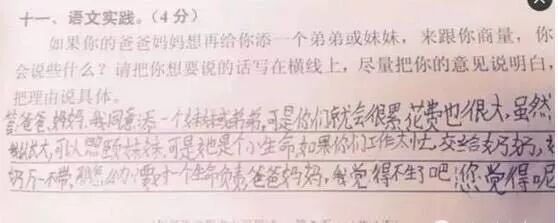 十一、语文实践。(4分)
如果你的爸爸妈妈想再给你添一个弟弟或妹妹，来跟你商量，你
会说些什么？请把你想要说的话写在横线上，尽量把你的意见说明白，
把理由说具体。
答:爸爸，妈妈，我同意添一个妹妹或弟弟，可是你们就会很累，花费也很大，虽然
我长大，可以照顾妹妹，可是她是个小生命，如果你们工作太忙，交给奶奶，
奶万一不带，那怎么办，要对一个生命负责，爸爸妈妈，我觉得不生了吧，您觉得呢